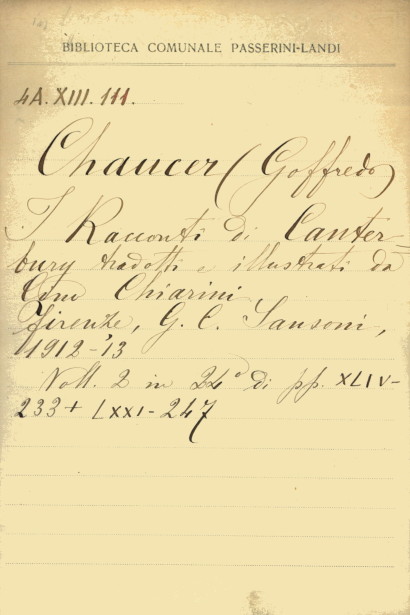 BIBLIOTECA COMUNALE PASSERINI-LANDI
4A. XIII. 111.
Chaucer (Goffredo)
I Racconti di Canter-
bury tradotti e illustrati da
Cino Chiarini
Firenze, G. C. Sansoni,
1912-'13
Voll. 2 in 24° di pp. XLIV-
233 + LXXI-247